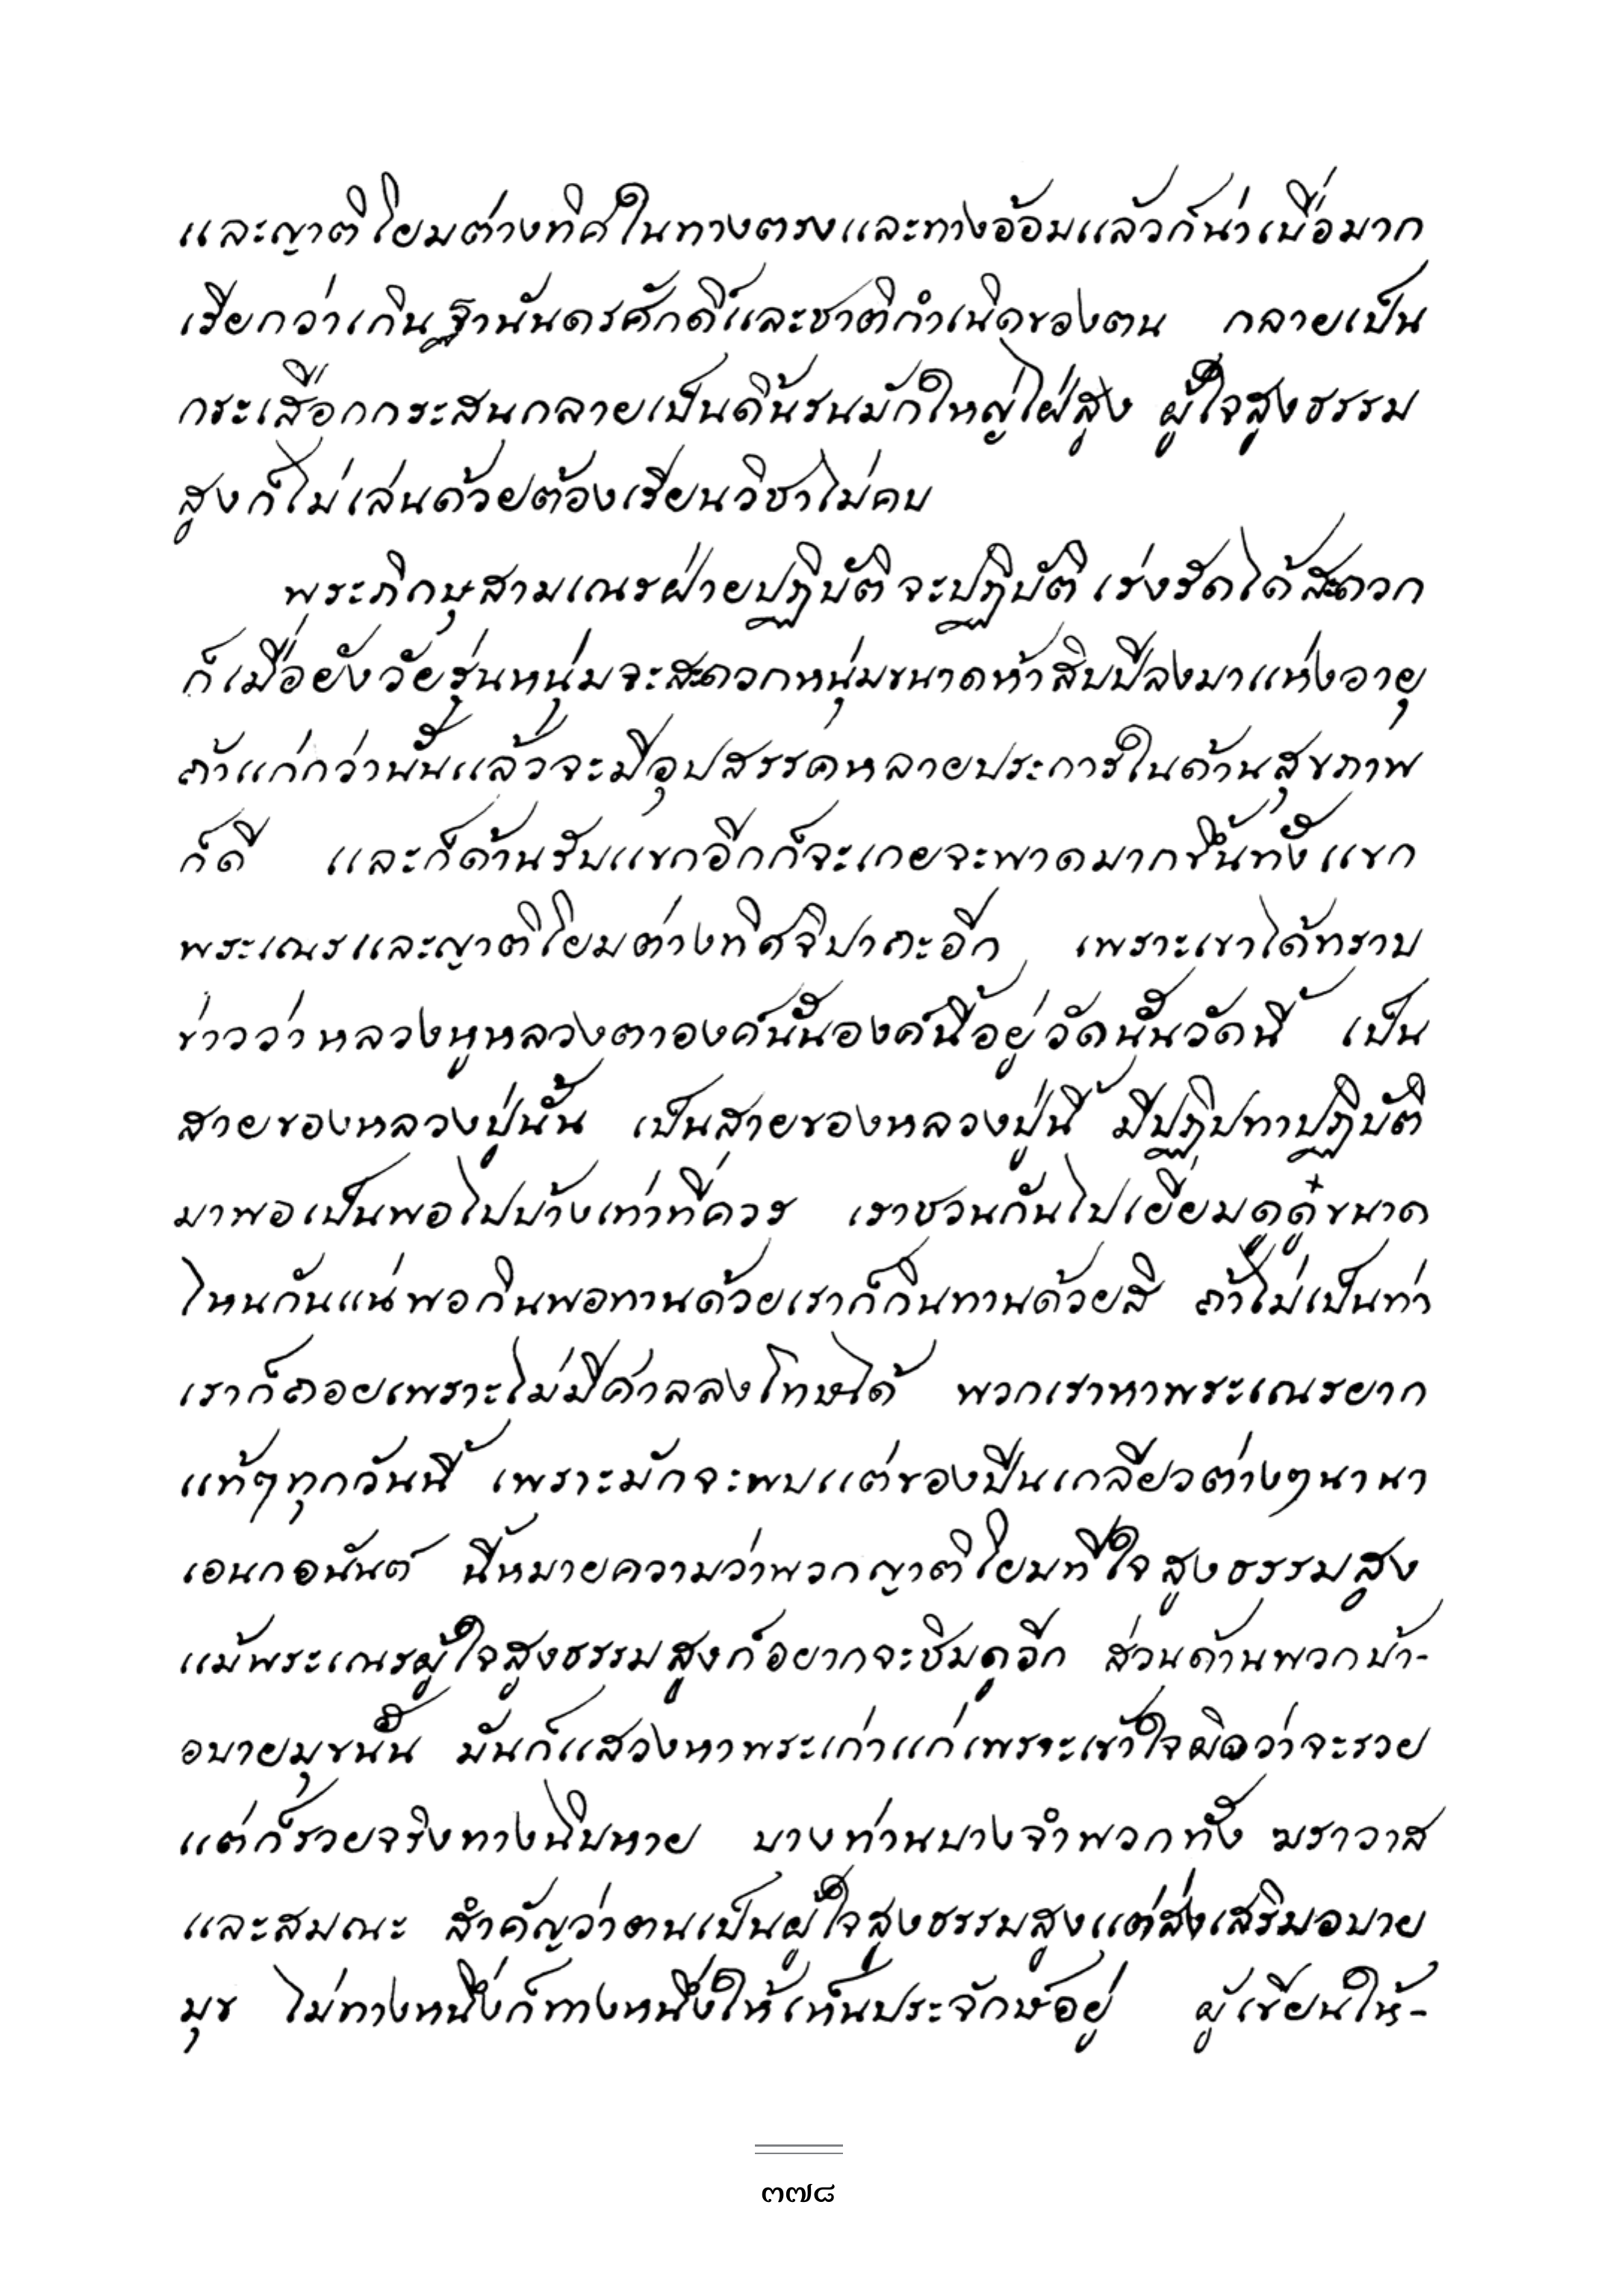 และญาติโยมต่างทิศในทางตรงและทางอ้อมแล้วก็น่าเบื่อมาก
เรียกว่าเกินฐานันดรศักดิ์และชาติกำเนิดของตน กลายเป็น
กระเสือกกระสนกลายเป็นดิ้นรนมักใหญ่ใฝ่สูง ผู้ใจสูงธรรม
สูงก็ไม่เล่นด้วยต้องเรียนวิชาไม่คบ
พระภิกษุสามเณรฝ่ายปฏิบัติจะปฏิบัติเร่งรัดได้สะดวก
ก็เมื่อยังวัยรุ่นหนุ่มจะสะดวกหนุ่มขนาดห้าสิบปีลงมาแห่งอายุ
ถ้าแก่กว่านั้นแล้วจะมีอุปสรรคหลายประการในด้านสุขภาพ
ก็ดี และก็ด้านรับแขกอีกก็จะเกยจะพาดมากขึ้นทั้งแขก
พระเณรและญาติโยมต่างทิศจิปาถะอีก เพราะเขาได้ทราบ
ข่าวว่าหลวงหูหลวงตาองค์นั้นองค์นี้อยู่วัดนั้นวัดนี้ เป็น
สายของหลวงปู่นั้น เป็นสายของหลวงปู่นี้ มีปฏิปทาปฏิบัติ
มาพอเป็นพอไปบ้างเท่าที่ควร เราชวนกันไปเยี่ยมดูดู๋ขนาด
ไหนกันแน่พอกินพอทานด้วยเราก็กินทานด้วยสิ ถ้าไม่เป็นท่า
เราก็ถอยเพราะไม่มีศาลลงโทษได้ พวกเราหาพระเณรยาก
แท้ๆทุกวันนี้ เพราะมักจะพบแต่ของปีนเกลียวต่างๆนานา
เอนกอนันต์ นี้หมายความว่าพวกญาติโยมที่ใจสูงธรรมสูง
แม้พระเณรผู้ใจสูงธรรมสูงก็อยากจะชิมดูอีก ส่วนด้านพวกบ้า-
อบายมุขนั้น มันก็แสวงหาพระเก่าแก่เพราะเข้าใจผิดว่าจะรวย
แต่ก็รวยจริงทางฉิบหาย บางท่านบางจำพวกทั้ง ฆราวาส
และสมณะ สำคัญว่าตนเป็นผู้ใจสูงธรรมสูงแต่ส่งเสริมอบาย
มุข ไม่ทางหนึ่งก็ทางหนึ่งให้เห็นประจักษ์อยู่ ผู้เขียนให้-
๓๗๘